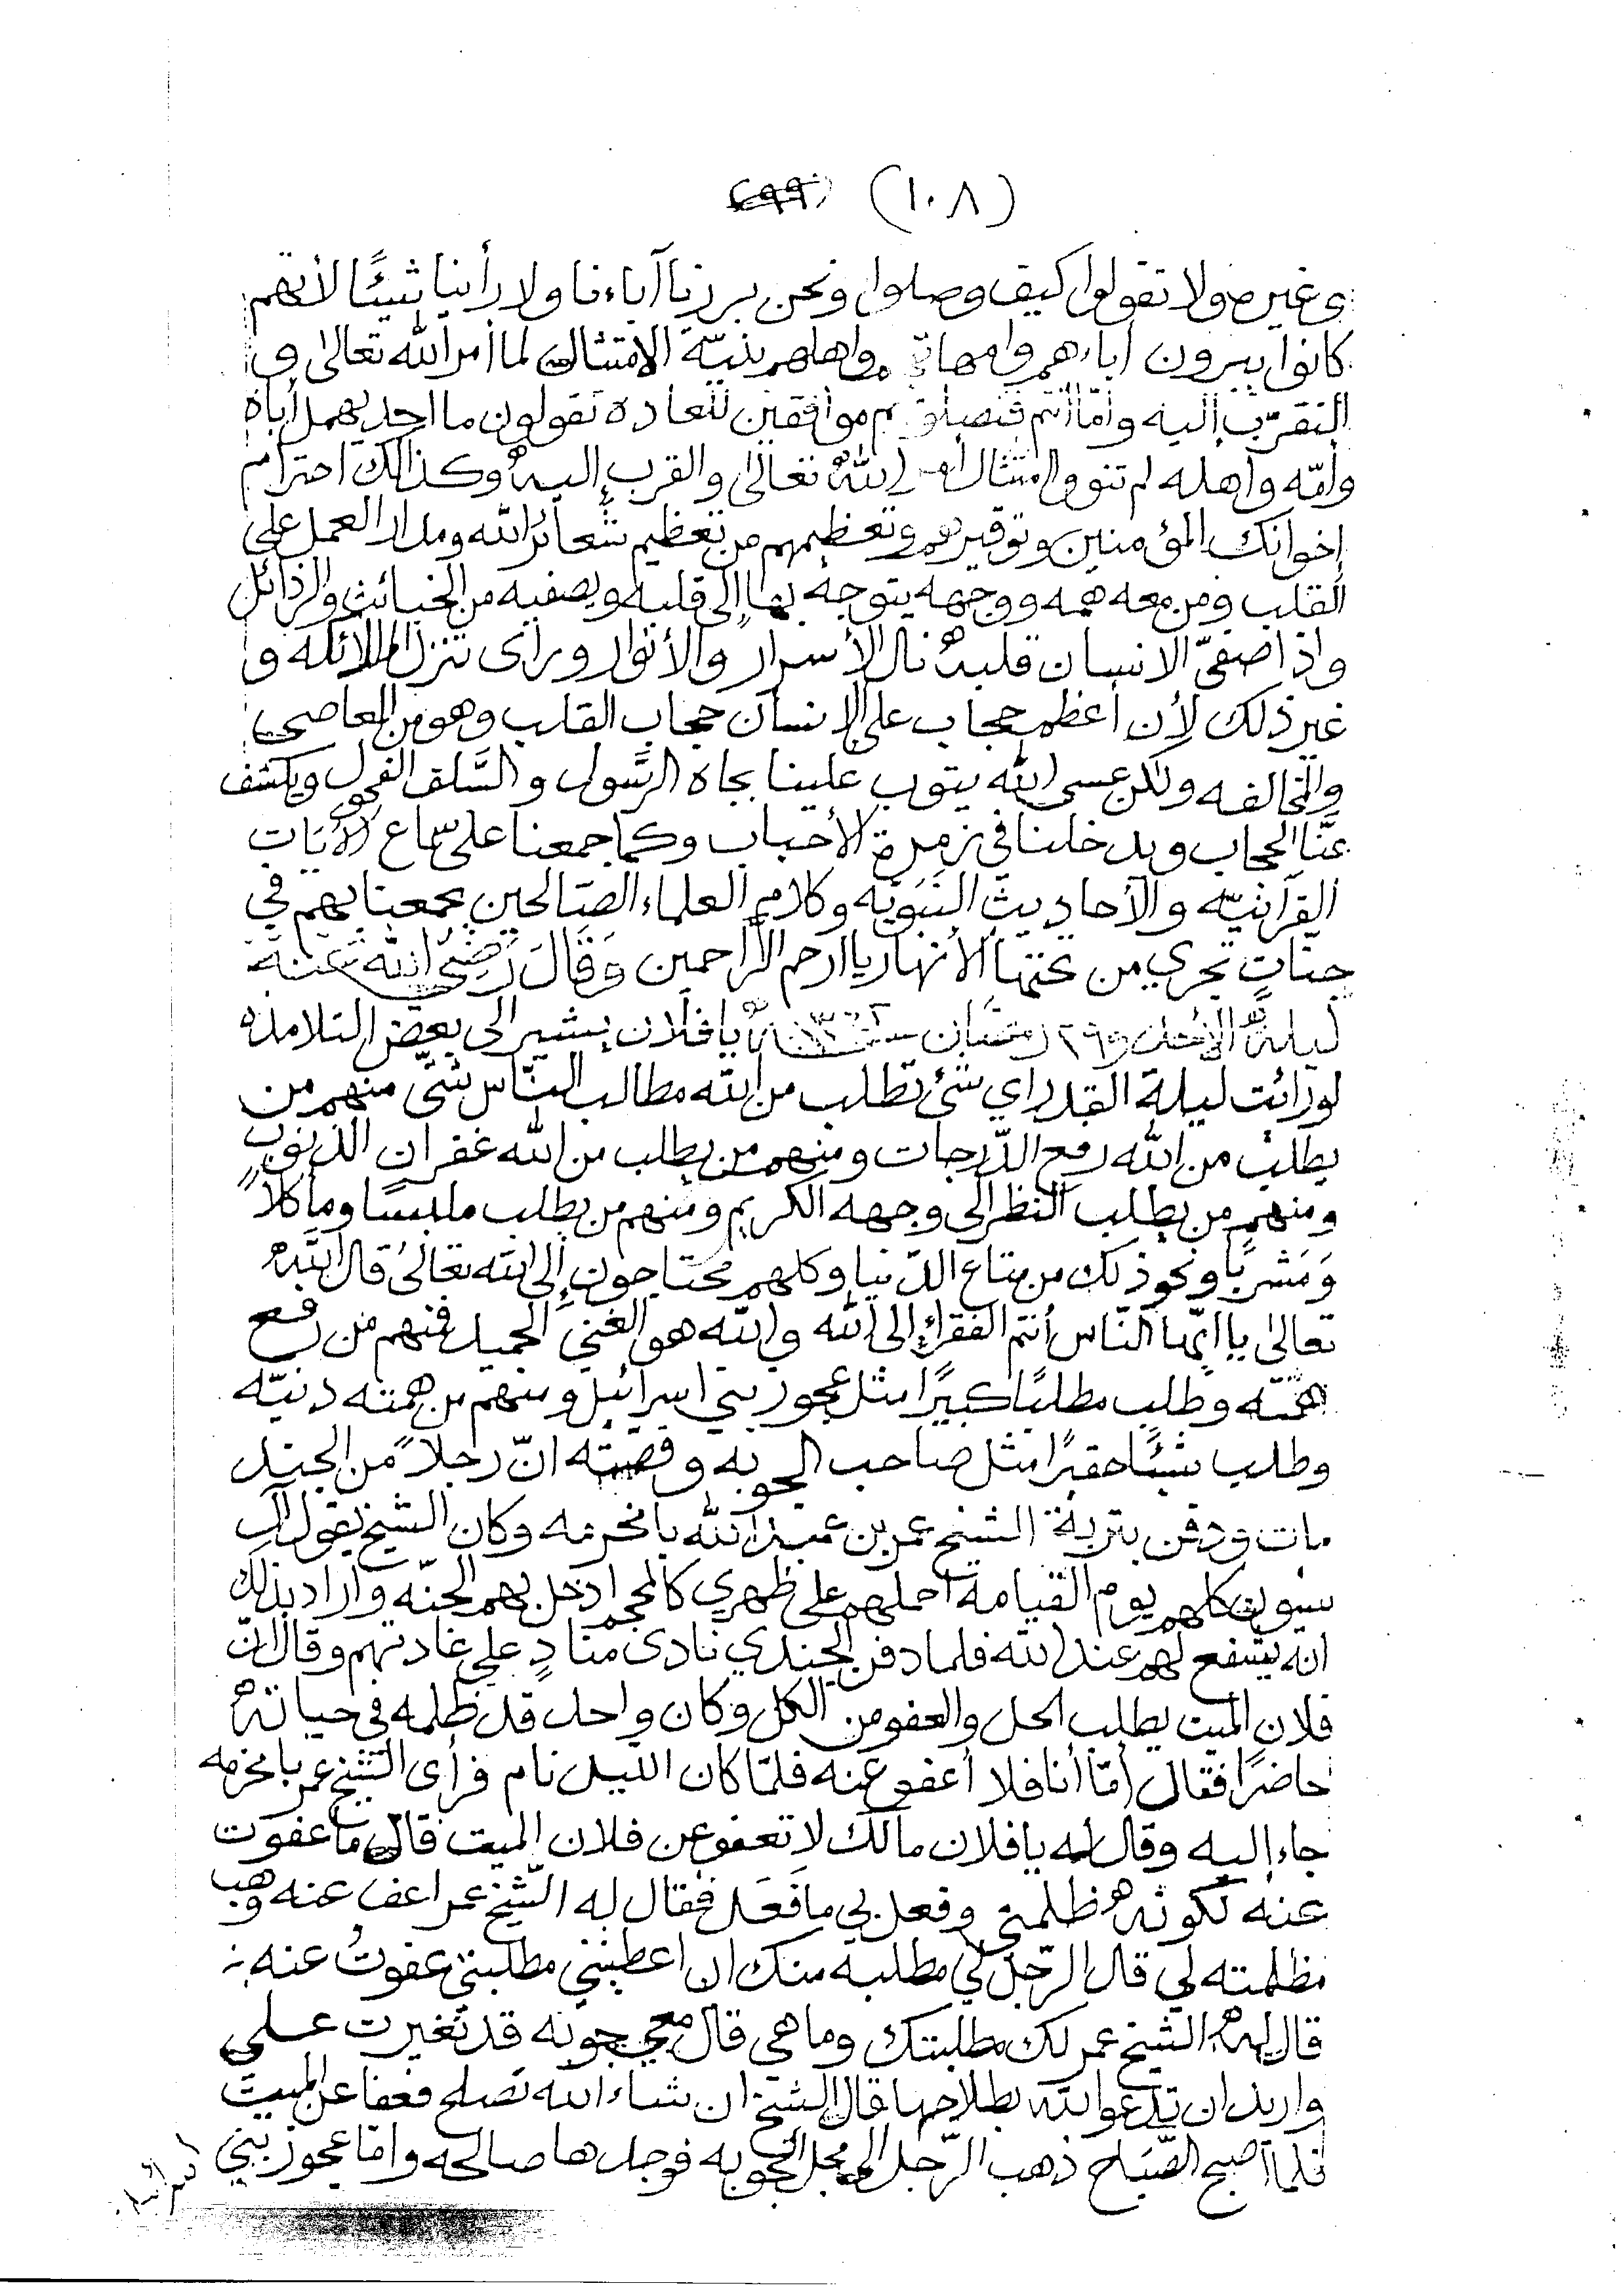 (١٠٨) ٩٩
وغيرهم ولا تقولوا كيف وصلوا ونحن برزنا آباءنا ولا رأينا شيئًا لأنهم
كانوا يبرون أباءهم وامهاتهم واهلهم بنيّة الامتثال لما أمر الله تعالى و
التقرّب إليه وأمّا أنتم فتصلونهم موافقين للعاده تقولون ما احد يهمل أباه
وأمّه وأهله لم تنووا امتثال أمر الله تعالى والقرب إليه وكذالك احترام
إخوانك المؤمنين وتوقيرهم وتعظيمهم من تعظيم شعائر الله ومدار العمل على
القلب ومن معه همه ووجهه يتوجه بها إلى قلبه ويصفيه من الخبائث والرذائل
واذا صفىّ الانسان قلبه نال الأسرار والأنوار وراى تنزل الملائكه و
غير ذلك لأن أعظم حجاب على الإنسان حجاب القلب وهو من المعاصي
والمخالفه ولكن عسى الله يتوب علينا بجاه الرّسول والسَّلف الفحول ويكشف
عنَّا الحجاب ويدخلنا في زمرة الأحباب وكما جمعنا على سماع الأيات
القرآنيّه والأحاديث النبَويّه وكلام العلماء الصّالحين يجمعنا بهم في
جنات تجري من تحتها الأنهار يا ارحم الرّاحمين وَقَالَ رَضِيَ الله عَنهُ
ليلة الأحد ٢٩ رمضان سنة يا فلان يشير الى بعض التلامذه
لو رائت ليلة القدر اي شئ تطلب من الله مطالب النّاس شتّى منهم من
يطلب من الله رفع الدّرجات ومنهم من يطلب من الله غفران الذنوب
ومنهم من يطلب النظر إلى وجهه الكريم ومنهم من يطلب ملبسًا ومأكلاً
وَمَشربًا ونحو ذلك من متاع الدّنيا وكلهم محتاجون إلى الله تعالىٰ قال الله
تعالىٰ يا ايّها النّاس أنتم الفقراء إلى الله والله هو الغني الحميد فمنهم من رفع
همته وطلب مطلبًا كبيرًا مثل عجوز بني اسرائيل ومنهم من همته دنيّه
وطلب شيئًا حقيرًا مثل صاحب الجوبه وقصته انّ رجلاً من الجند
مات ودفن بتربة الشيخ عمر بن عبد الله بامخرمه وكان الشيخ يقول آل
سيون كلهم يوم القيامه احملهم على ظهري كالمحجم ادخل بهم الجنّه واراد بذلك
انه يشفع لهم عند الله فلما دفن الجندي نادى منادٍ على عادتهم وقال انّ
فلان الميت يطلب الحل والعفو من الكل وكان واحد قد ظلمه في حياته
حاضرًا فقال أمّا أنا فلا أعفو عنه فلمّا كان الليل نام فرأى الشيخ عمر بامخرمه
جاء إليه وقال له يا فلان مالك لا تعفو عن فلان الميت قال ما عفوت
عنه لكونه ظلمني وفعل بي ما فَعَل فقال له الشّيخ عمر اعف عنه وهب
مظلمته لي قال الرّجل لي مطلبه منك ان اعطيتني مطلبتي عفوتُ عنه
قال له الشيخ عمر لك مطلبتك وما هي قال معي جوبه قد تغيرت علي
واريد ان تدعو الله بصلاحها قال الشيخ ان شاء الله تصلح فعفا عن الميت
فلما أصبح الصّباح ذهب الرّجل إلى محل الجوبه فوجدها صالحه وامّا عجوز بني
اسرائيل